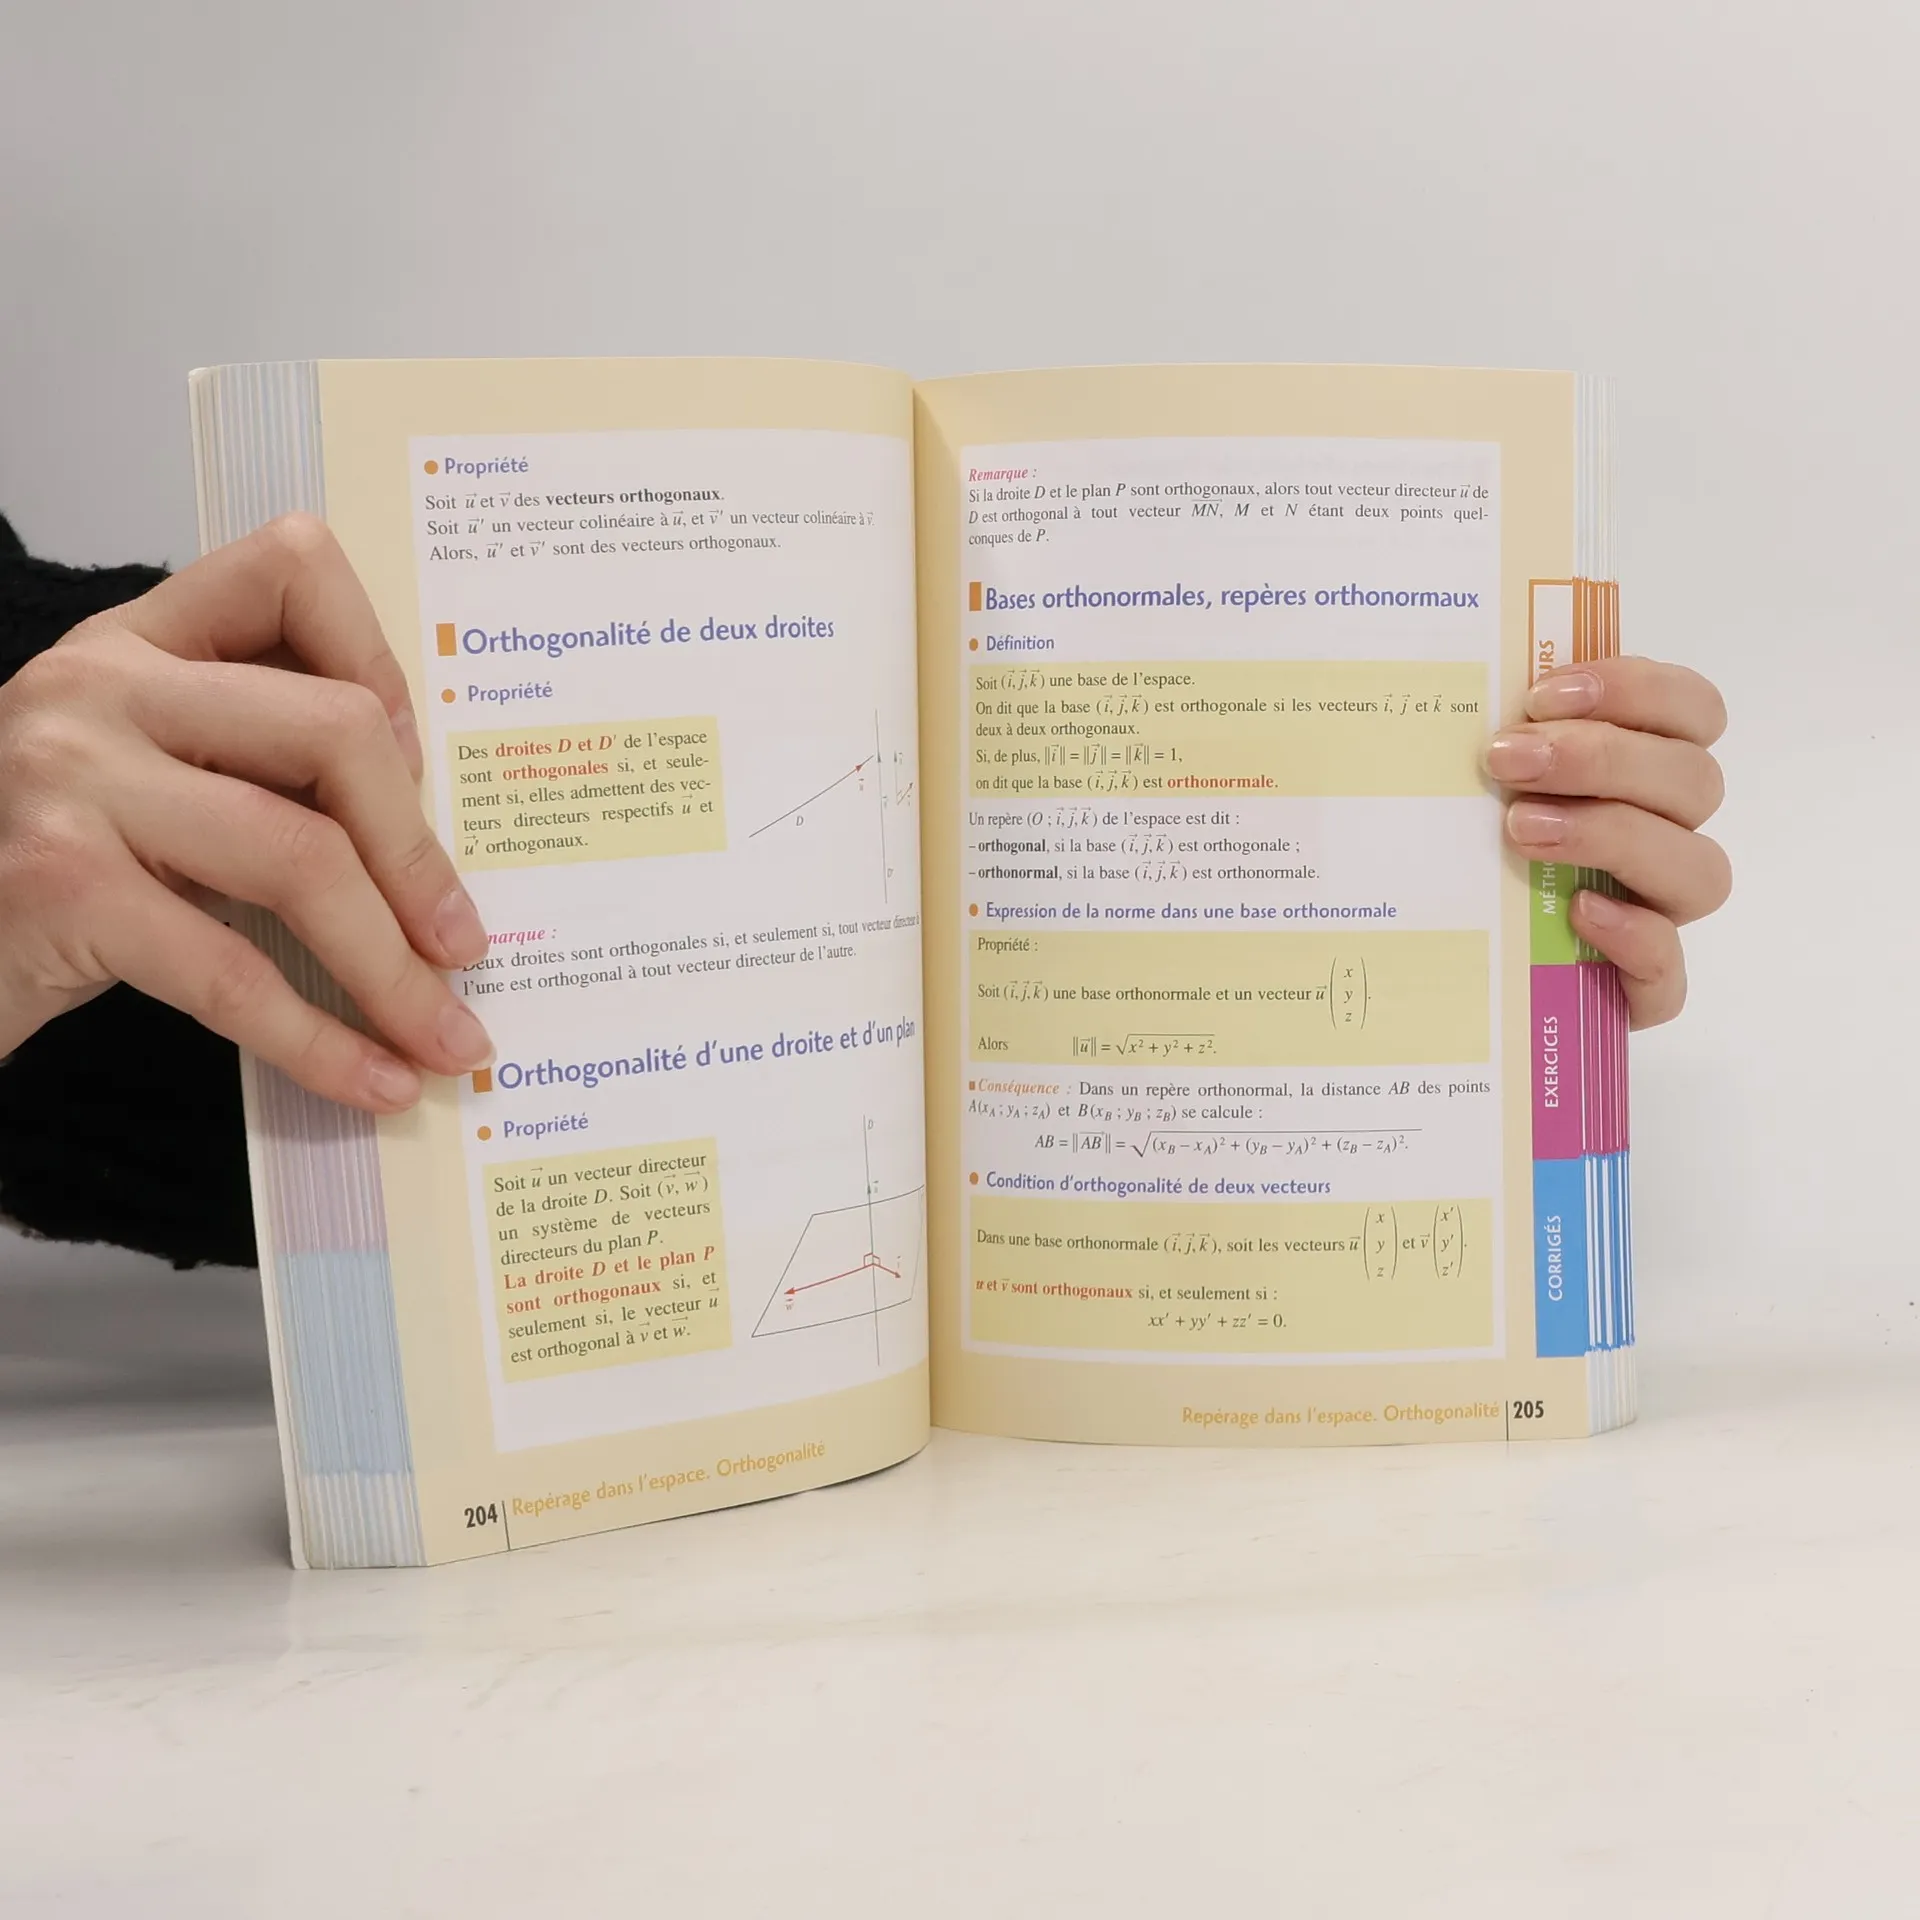 Propriété
Soit u⃗ et v⃗ des vecteurs orthogonaux.
Soit u⃗' un vecteur colinéaire à u⃗, et v⃗' un vecteur colinéaire à v⃗.
Alors, u⃗' et v⃗' sont des vecteurs orthogonaux.
Orthogonalité de deux droites
Propriété
Des droites D et D' de l'espace
sont orthogonales si, et seule-
ment si, elles admettent des vec-
teurs directeurs respectifs u⃗ et
u⃗' orthogonaux.
D
D'
marque :
Deux droites sont orthogonales si, et seulement si, tout vecteur directeur
l'une est orthogonal à tout vecteur directeur de l'autre.
Orthogonalité d'une droite et d'un plan
Propriété
Soit u⃗ un vecteur directeur
de la droite D. Soit (v⃗, w⃗)
un système de vecteurs
directeurs du plan P.
La droite D et le plan P
sont orthogonaux si, et
seulement si, le vecteur u⃗
est orthogonal à v⃗ et w⃗.
D
w⃗
204 | Repérage dans l'espace. Orthogonalité
Remarque :
Si la droite D et le plan P sont orthogonaux, alors tout vecteur directeur u⃗ de
D est orthogonal à tout vecteur MN⃗, M et N étant deux points quel-
conques de P.
Bases orthonormales, repères orthonormaux
Définition
Soit (i⃗, j⃗, k⃗) une base de l'espace.
On dit que la base (i⃗, j⃗, k⃗) est orthogonale si les vecteurs i⃗, j⃗ et k⃗ sont
deux à deux orthogonaux.
Si, de plus, ||i⃗|| = ||j⃗|| = ||k⃗|| = 1,
on dit que la base (i⃗, j⃗, k⃗) est orthonormale.
Un repère (O ; i⃗, j⃗, k⃗) de l'espace est dit :
– orthogonal, si la base (i⃗, j⃗, k⃗) est orthogonale ;
– orthonormal, si la base (i⃗, j⃗, k⃗) est orthonormale.
Expression de la norme dans une base orthonormale
Propriété :
Soit (i⃗, j⃗, k⃗) une base orthonormale et un vecteur u⃗ (x y z).
Alors ||u⃗|| = √(x² + y² + z²).
Conséquence : Dans un repère orthonormal, la distance AB des points
A(x_A ; y_A ; z_A) et B(x_B ; y_B ; z_B) se calcule :
AB = ||AB⃗|| = √((x_B – x_A)² + (y_B – y_A)² + (z_B – z_A)²).
Condition d'orthogonalité de deux vecteurs
Dans une base orthonormale (i⃗, j⃗, k⃗), soit les vecteurs u⃗ (x y z) et v⃗ (x' y' z').
u⃗ et v⃗ sont orthogonaux si, et seulement si :
xx' + yy' + zz' = 0.
Repérage dans l'espace. Orthogonalité | 205
URS
MÉTHO
EXERCICES
CORRIGÉS